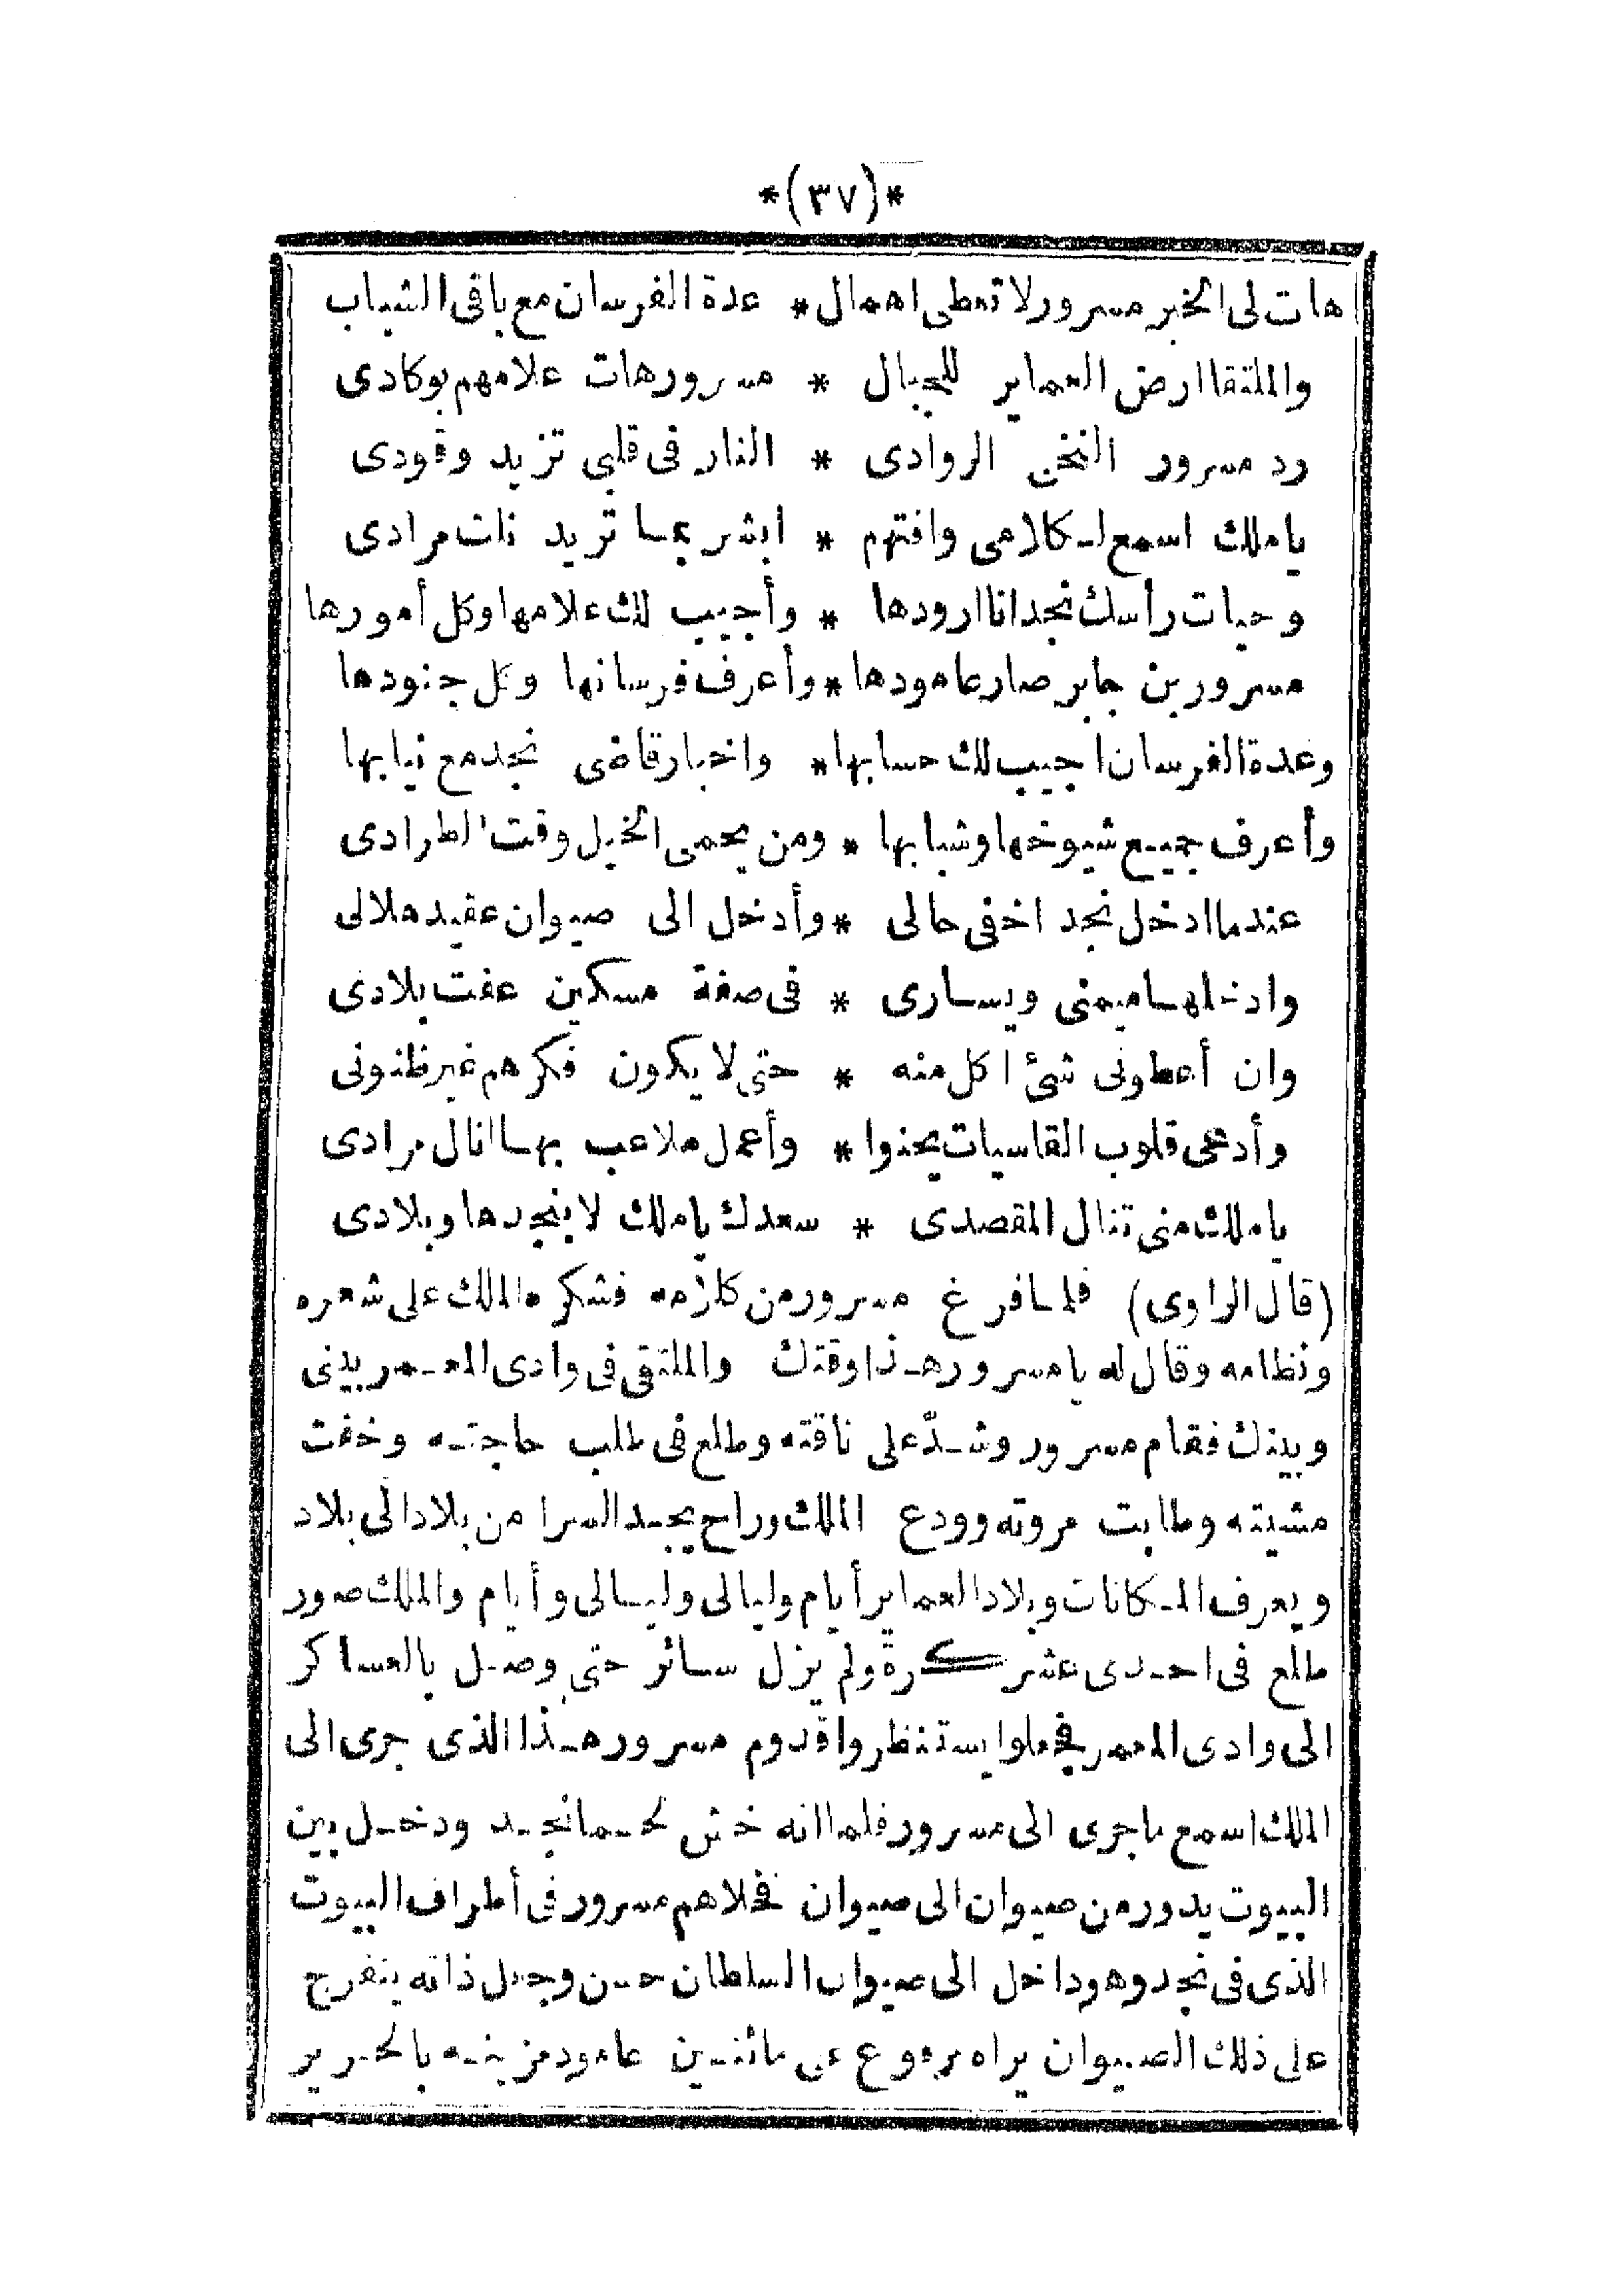 *(٣٧)*
هات لى الخبر مسرور لا تعطى اهمال * عدة الفرسان مع باقى الشباب
والملتقا ارض العماير للجبال * مسرور هات علامهم بوكادى
رد مسرور النخى الروادى * النار فى قلبى تزيد وقودى
يا ملك اسمع لـكلامى وافتهم * ابشر بما تريد نلت مرادى
وحيات رأسك نجد انا ارودها * وأجيب لك علامها وكل أمورها
مسرور بن جابر صار عامودها * وأعرف فرسانها وكل جنودها
وعدة الفرسان اجيب لك حسابها * واخبار قاضى نجد مع نيابها
وأعرف جميع شيوخها وشبابها * ومن يحمى الخيل وقت الطرادى
عندما ادخل نجد اخفى حالى * وأدخل الى صيوان عقيد هلالى
وادخلها ميمنى ويسارى * فى صفة مسكين عفت بلادى
وان أعطونى شئ اكل منه * حتى لا يكون فكرهم غير ظنونى
وأدعى قلوب القاسيات يحنوا * وأعمل ملاعب بها انال مرادى
يا ملك منى تنال المقصدى * سعدك يا ملك لا ينجدها وبلادى
(قال الراوى) فلما فرغ مسرور من كلامه فشكره الملك على شعره
ونظامه وقال له يا مسرور هذا وقتك والملتقى فى وادى المعمر بينى
وبينك فقام مسرور وشدّ على ناقته وطلع فى طلب حاجته وخفت
مشيته وطابت مروته وودع الملك وراح يجد السرا من بلاد الى بلاد
ويعرف المكانات وبلاد العماير أيام وليالى وليالى وأيام والملك صور
طلع فى احدى عشر كرة ولم يزل سائر حتى وصل بالعساكر
الى وادى المعمر فجعلوا يستنظروا قدوم مسرور هذا الذى جرى الى
الملك اسمع ما جرى الى مسرور فلما انه خش لحما نجد ودخل بين
البيوت يدور من صيوان الى صيوان فخلاهم مسرور فى أطراف البيوت
الذى فى نجد وهو داخل الى صيوان السلطان حسن وجعل ذاته يتفرج
على ذلك الصيوان يراه مرفوع على مائتين عامود مزينه بالحرير